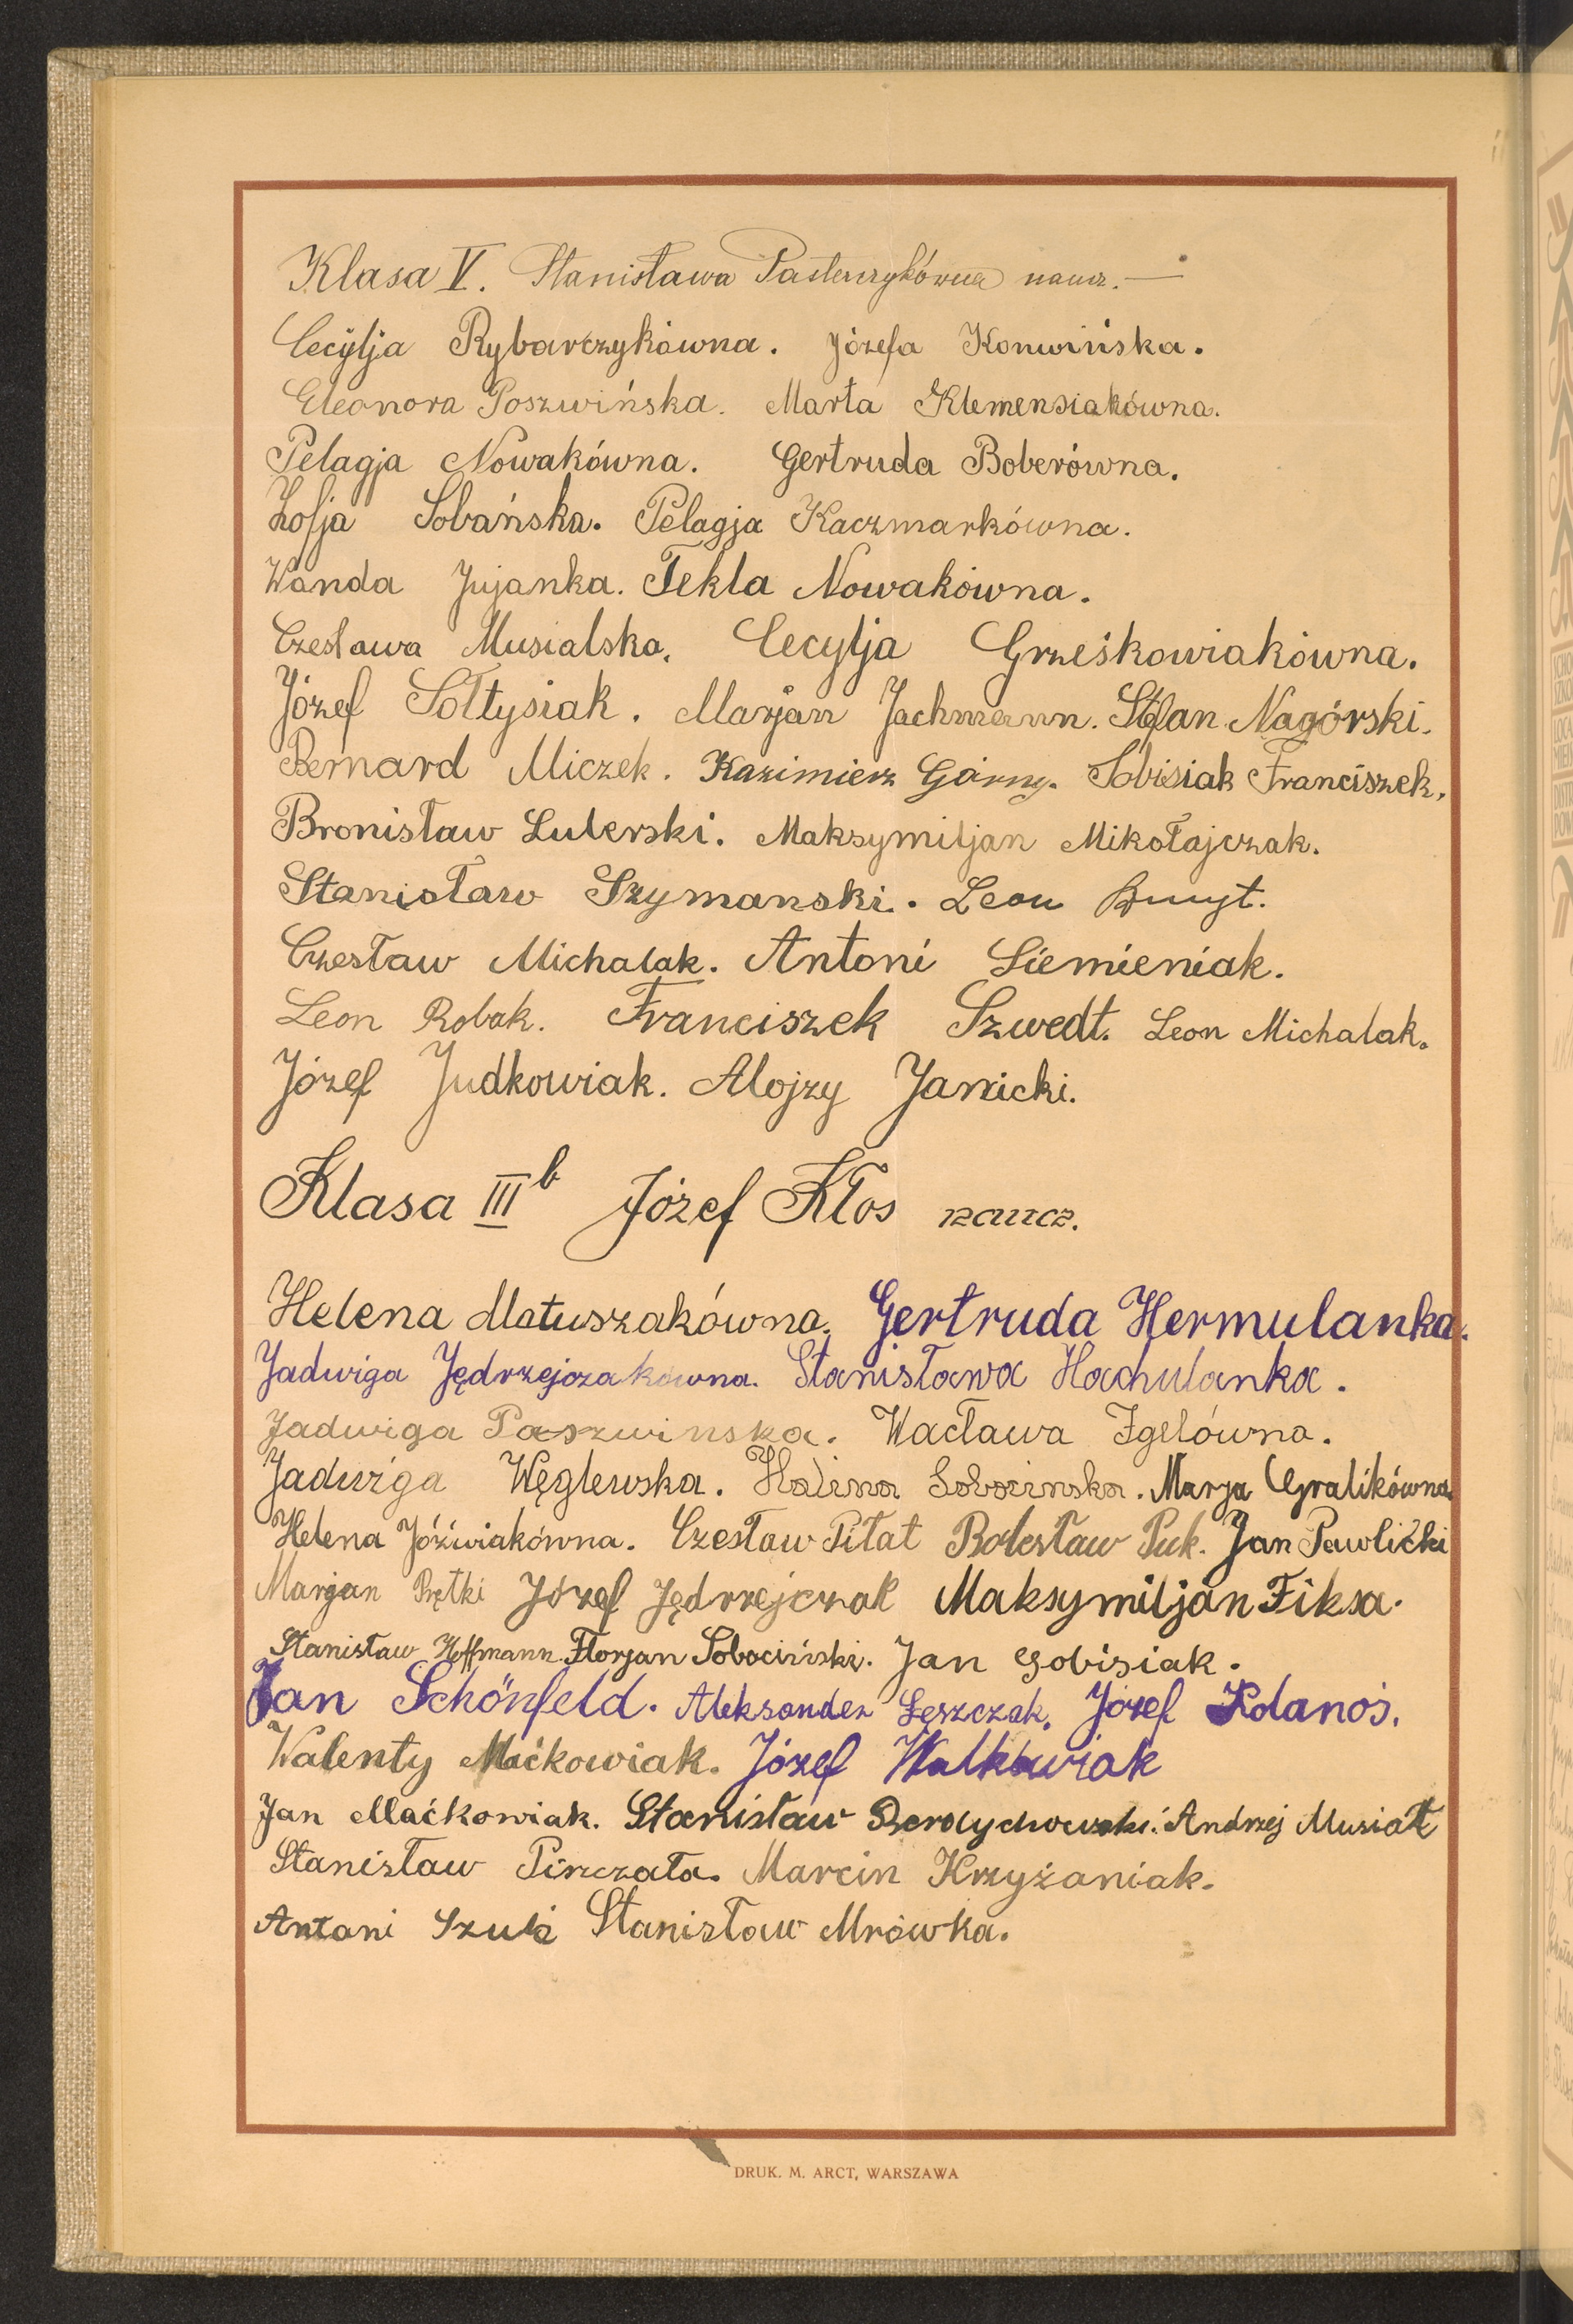 Klasa V. Stanisława Pasterczykówna naucz. —
Cecylja Rybarczykówna. Józefa Konwińska.
Eleonora Poszwińska. Marta Klemensiakówna.
Pelagja Nowakówna. Gertruda Boberówna.
Zofja Sobańska. Pelagja Kaczmarkówna.
Wanda Jujanka. Tekla Nowakówna.
Czesława Musialska. Cecylja Grześkowiakówna.
Józef Sołtysiak. Marjan Jachmann. Stefan Nagórski.
Bernard Miczek. Kazimierz Górny. Sobisiak Franciszek.
Bronisław Luterski. Maksymiljan Mikołajczak.
Stanisław Szymanski. Leon
Czesław Michalak. Antoni Siemieniak.
Leon Robak. Franciszek Szwedt. Leon Michalak.
Józef Judkowiak. Alojzy Janicki.
Klasa III b Józef Kłos naucz.
Helena Matuszakówna. Gertruda Hermulanka.
Jadwiga Jędrzejczakówna. Stanisława Hachulanka.
Jadwiga Poszwinska. Wacława Igelówna.
Jadwiga Węglewska. Halina Sobocinska. Marja Gralikówna.
Helena Jóźwiakówna. Czesław Piłat Bolesław Puk. Jan Pawlicki
Marjan Prętki Józef Jędrzejczak Maksymiljan Fiksa.
Stanisław Hoffmann. Florjan Sobociński. Jan Sobisiak.
Jan Schönfeld. Aleksander Leszczak. Józef Kolanoś.
Walenty Maćkowiak. Józef Walkowiak
Jan Maćkowiak. Stanisław Berdychowski. Andrzej Musiał
Stanisław Pinczata. Marcin Krzyżaniak.
Antoni Szulc Stanisław Mrówka.
DRUK. M. ARCT, WARSZAWA